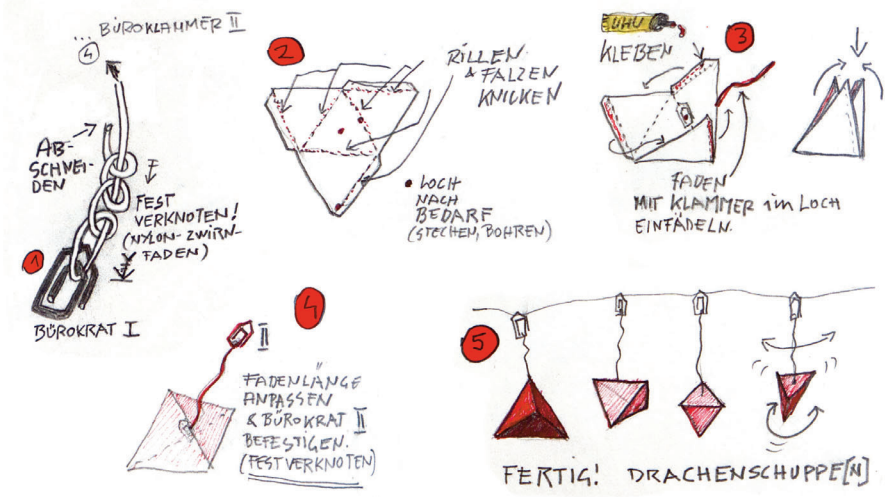 ... BÜROKLAMMER II
4
AB-
SCHNEI-
DEN
FEST
VERKNOTEN!
(NYLON-ZWIRN-
FADEN)
1
BÜROKRAT I
2
RILLEN
& FALZEN
KNICKEN
LOCH
NACH
BEDARF
(STECHEN, BOHREN)
UHU
KLEBEN
3
FADEN
MIT KLAMMER im LOCH
EINFÄDELN.
4
II
FADENLÄNGE
ANPASSEN
& BÜROKRAT II
BEFESTIGEN.
(FEST VERKNOTEN)
5
FERTIG! DRACHENSCHUPPE[N]